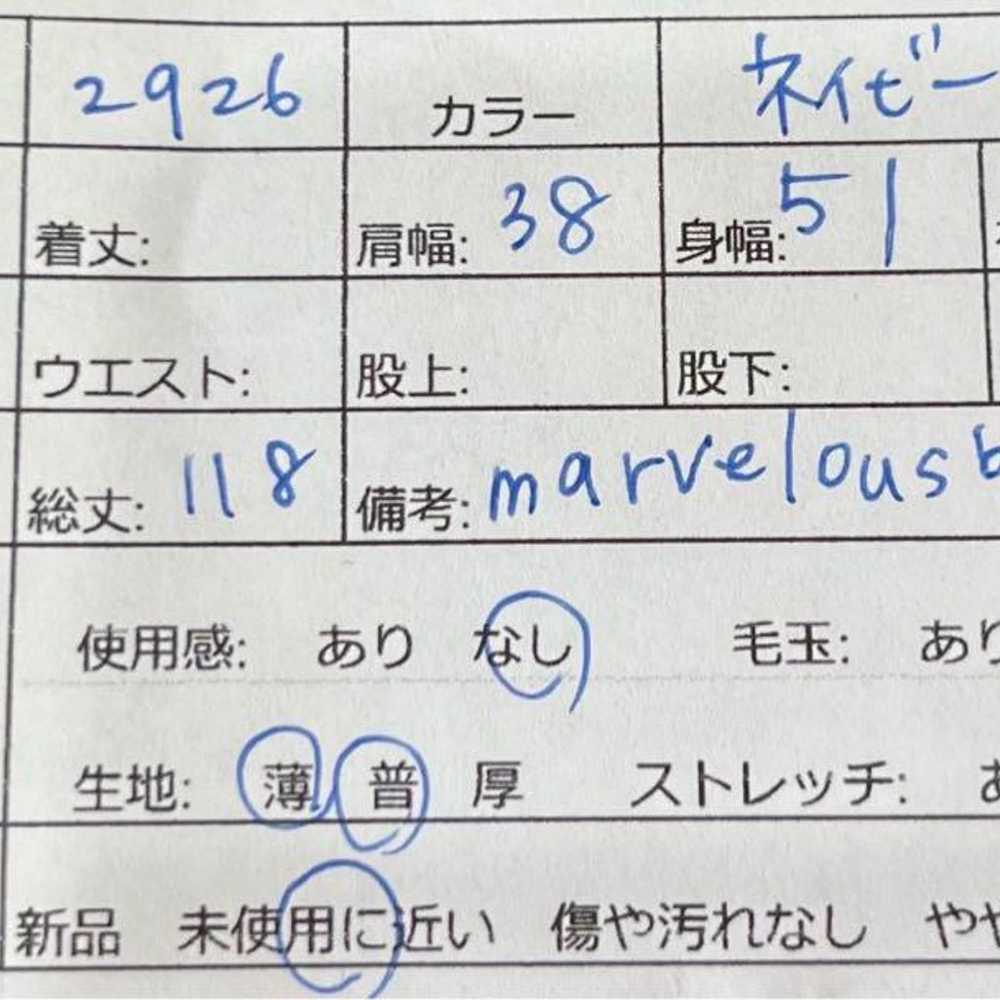 2926 カラー ネイビー
着丈: 肩幅: 38 身幅: 51
ウエスト: 股上: 股下:
総丈: 118 備考: marvelous b
使用感: あり なし 毛玉: あり
生地: 薄 普 厚 ストレッチ: あ
新品 未使用に近い 傷や汚れなし やや